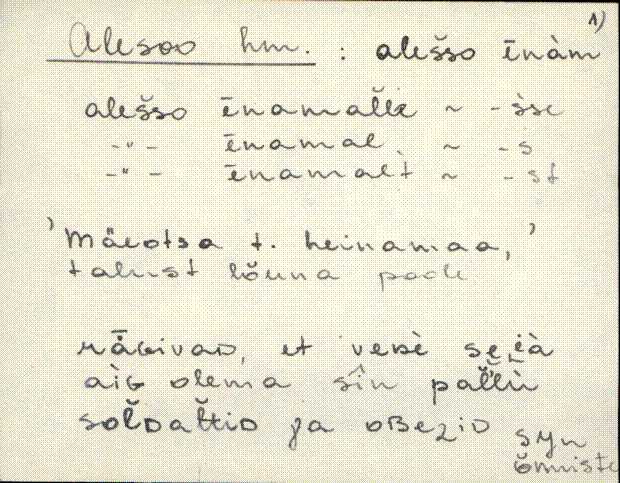 1)
Alesoo hm. : alešso ēnàm
alešso ēnamal̆l̆e ~ -šse
-"- ēnamal. ~ -s
-"- ēnamalt ~ -st
'Mäeotsa t. heinamaa,'
talust lõuna pool
rǟGivaD, et venè
àiG olema sîn pal̆l̆ù
ja oBeziD
syn